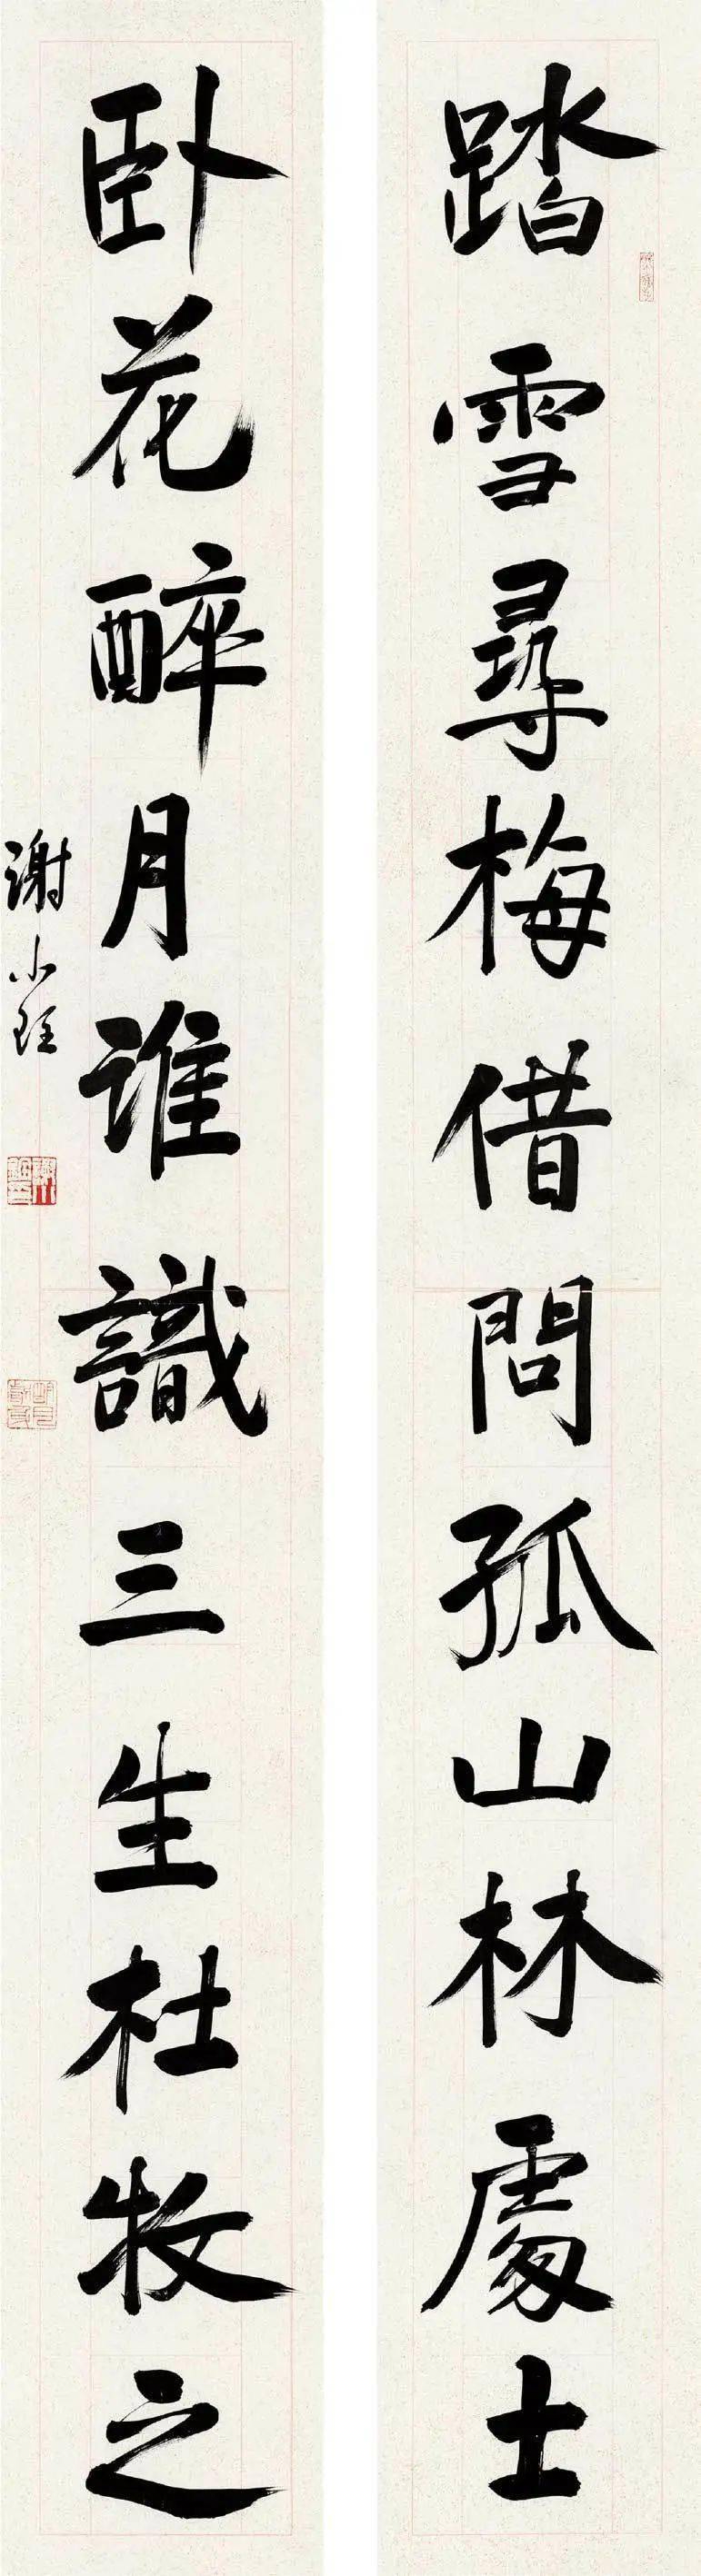 踏雪尋梅借問孤山林處士
卧花醉月谁識三生杜牧之
谢小銓